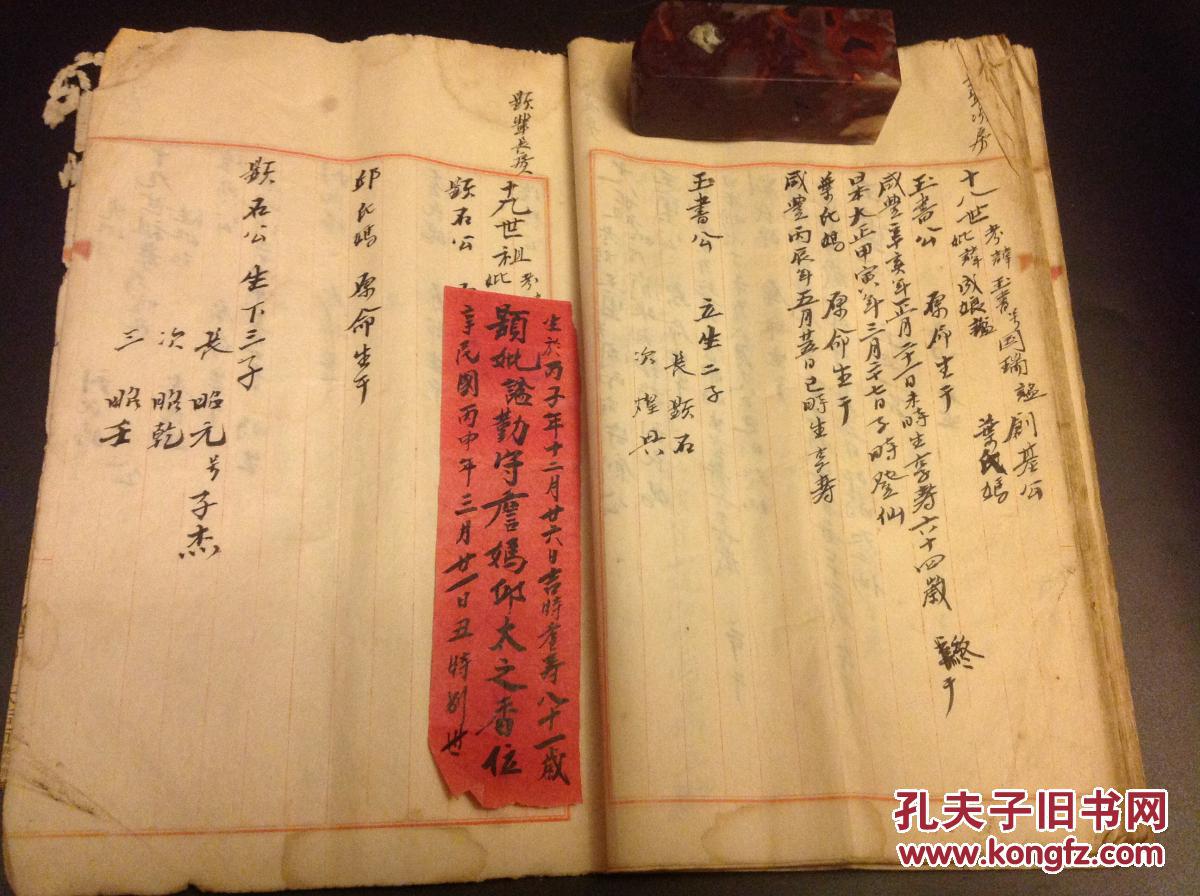 十八世
考諱玉書号国瑞諡創基公
妣諱成娘諡 葉氏媽
玉書公 原命生于
咸豐辛亥年正月二十一日未時生享壽六十四歲 終于
大正甲寅年三月二十七日子時登仙
葉氏媽 原命生于
咸豐丙辰年五月廿五日巳時生享壽
玉書公 立生二子
長顯石
次耀
顯 長房
十九世祖
考
妣
顯石公
生於丙子年十二月廿六日吉時 壽八十一歲
顯妣諡勤守 媽邱太之香位
享民國丙申年三月廿一日丑時別世
邱氏媽 原命生于
顯石公生下三子
長 昭元号子杰
次 昭乾
三 昭壬
孔夫子旧书网
www.kongfz.com